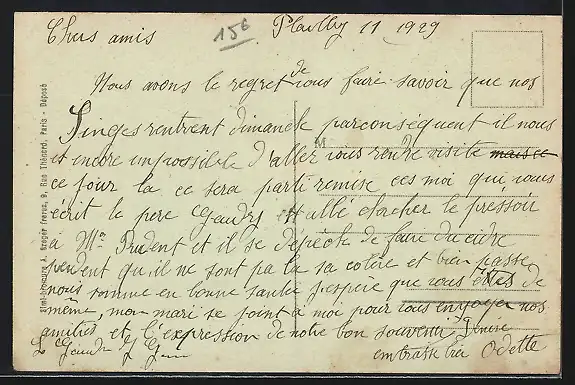 Chers amis 156 Plailly 11 1929
Nous avons le regret de vous faire savoir que nos
Singes rentrent dimanche parconsequent il nous
est encore impossible d'aller vous rendre visite mais ce
ce jour la ce sera parti remise ces moi qui vous
écrit le pere est allé chacher le pressoir
a Mr Prudent et il se dépêche de faire du cidre
pendent qu'il ne sont pa la sa colore et bien passe
nous somme en bonne santée j'espere que vous êttes de
même, mon mari se joint à moi pour vous envoyer nos
amitiés et l'expression de notre bon souvenir Denise
embrasse bien Odette
L
Imp.-Phototypie A. Breger frères, 9, Rue Thénard, Paris - Déposé